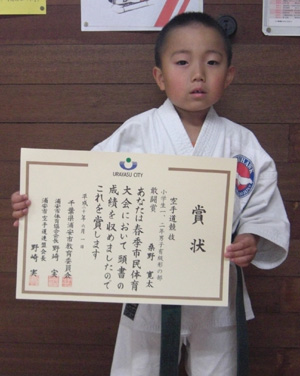 URAYASU CITY
賞状
空手道競技
小学生一、二年男子有級形の部
敢闘賞
桑野 寛太
あなたは春季市民体育
大会において頭書の
成績を収めましたので
これを賞します
千葉県浦安市教育委員会
浦安市体育協会会長 野崎 実
浦安市空手道連盟会長
野崎 実